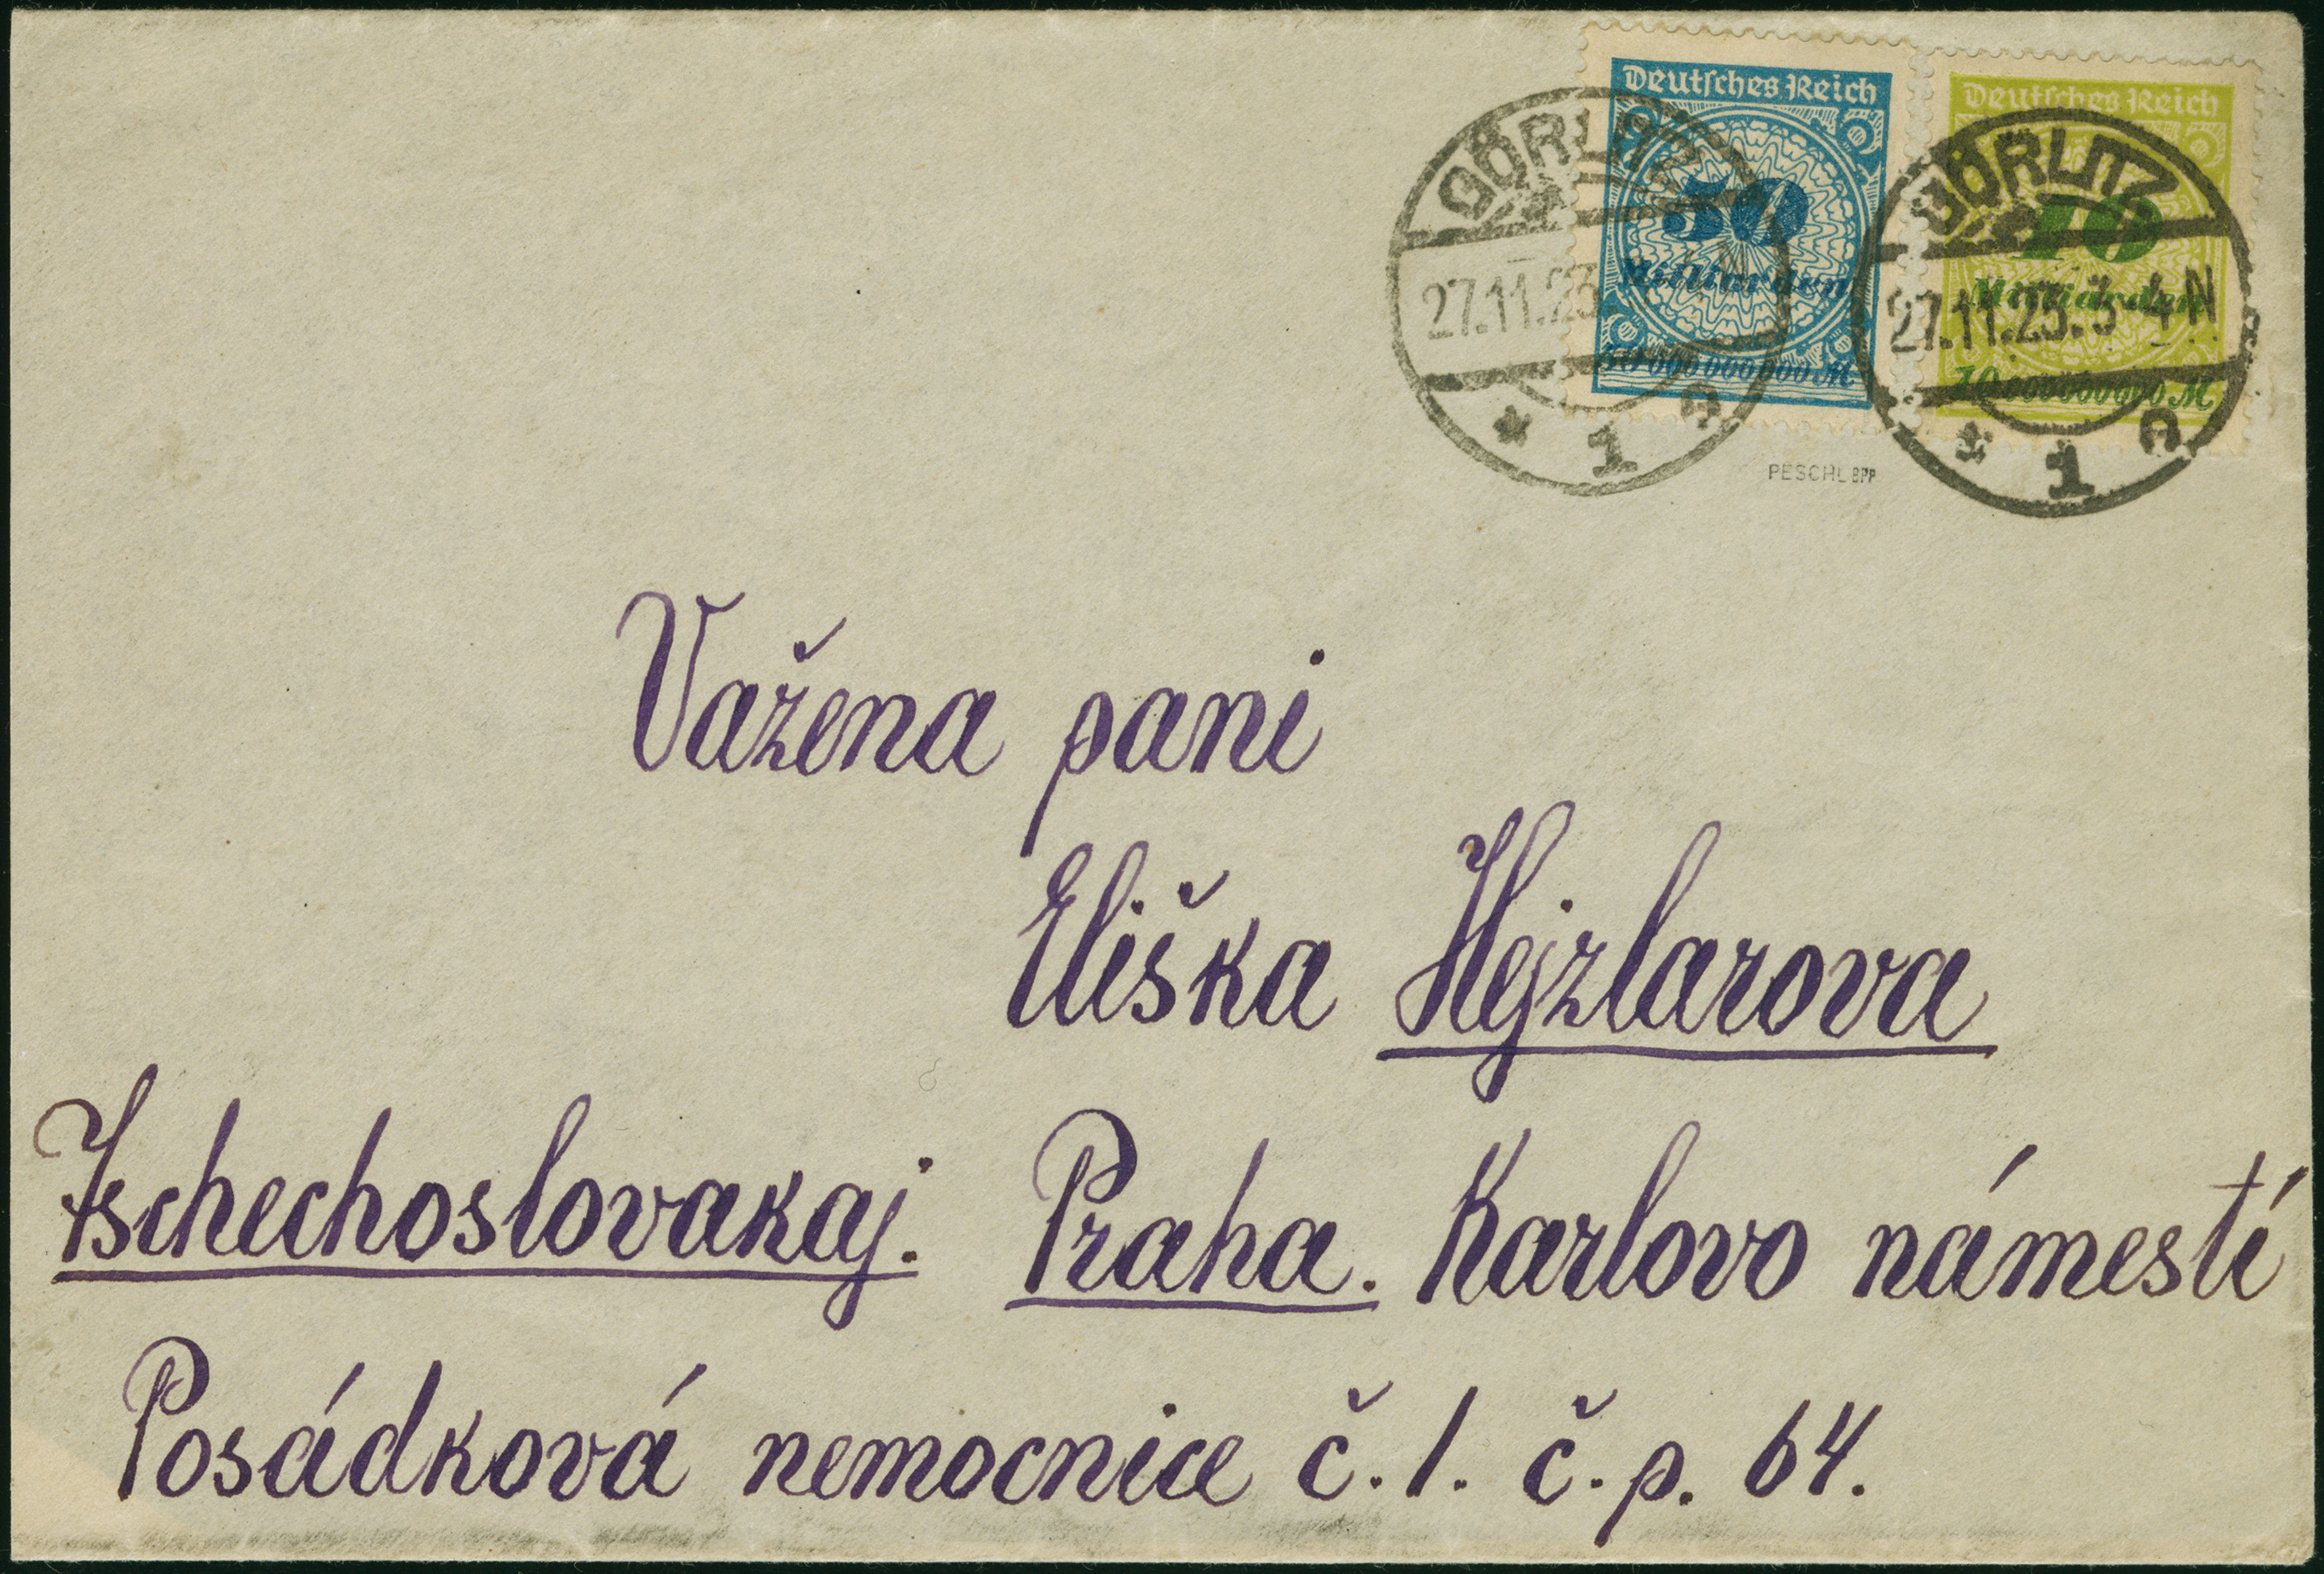 Deutsches Reich
50
Milliarden
50 000 000 000 M
Deutsches Reich
10
Milliarden
10 000 000 000 M
GÖRLITZ
27.11.23
* 1
GÖRLITZ
27.11.23.3-4 N
* 1
PESCHL BPP
Važena pani
Eliška Hejzlarova
Tschechoslovakaj. Praha. Karlovo námestí
Posádková nemocnice č. 1. č. p. 64.